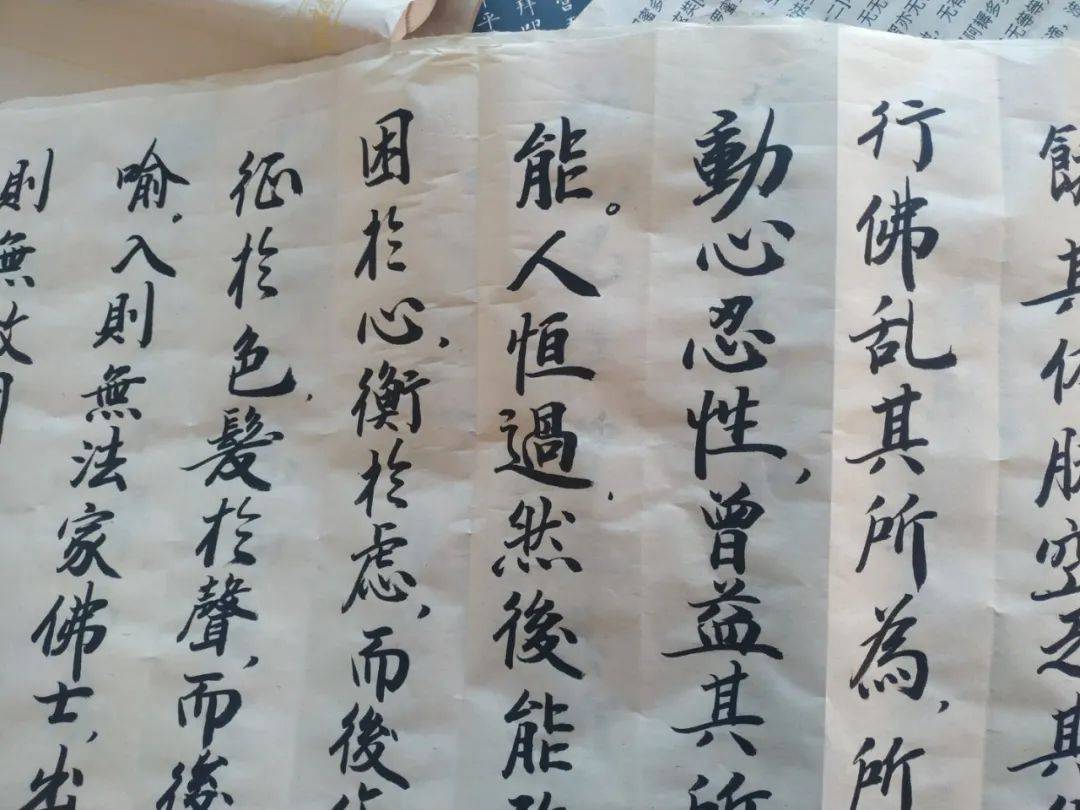 餓其体肤空乏其
行佛乱其所為，所
動心忍性，曾益其所
能。人恒過，然後能
困於心，衡於虑，而後
征於色，髮於聲，而後
喻，入則無法家佛士，出
則無